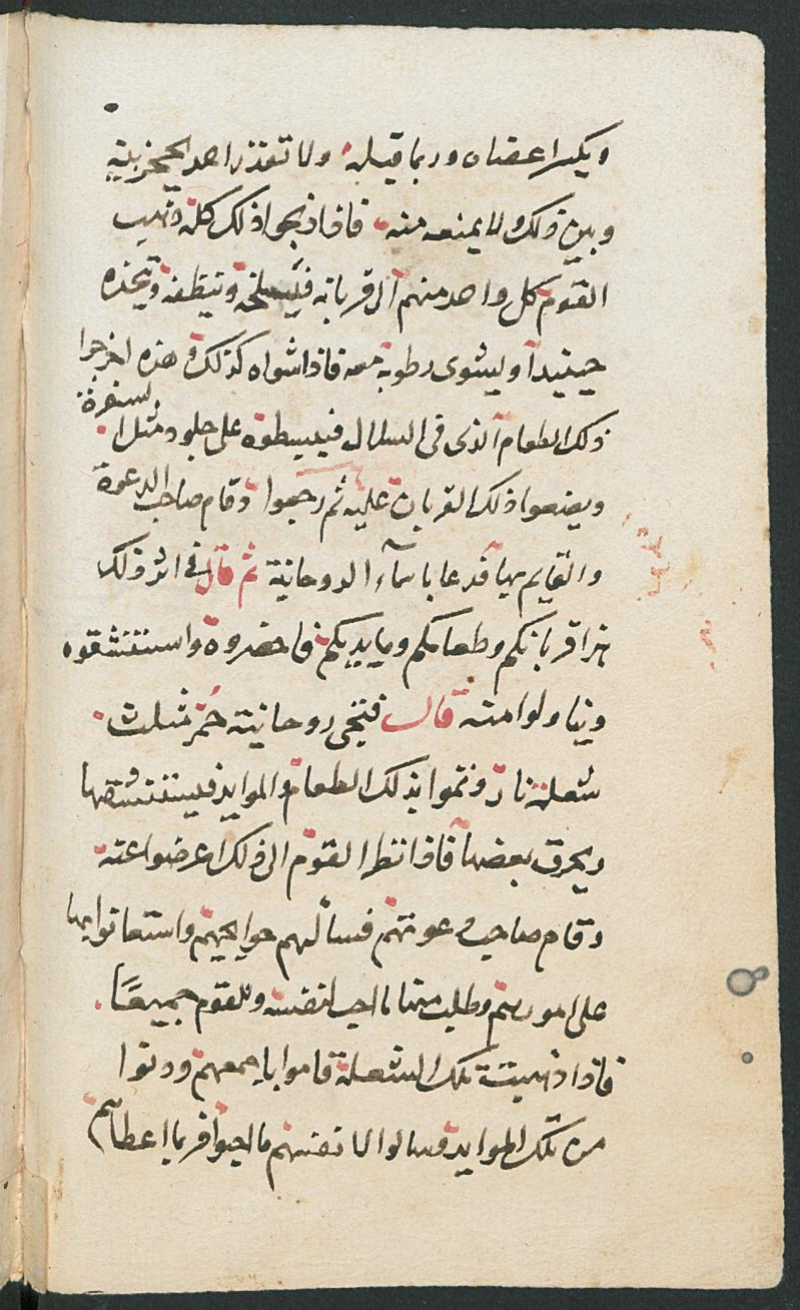 ويكسر اعضاه وربما قتله ولا تقدر احد يحجز بينه
وبين ذلك ولا يمنعه منه فاذا ذبحوا ذلك كله ذهب
القوم كل واحد منهم الى قربانه فيسلخه وينظفه ويتخذه
حينيدا ويشوى رطوبة معه فاذا شواه كذلك وهذه اخرجوا
ذلك الطعام الذى فى السلال فيبسطوه على جلود مثل السفرة
ويضعوا ذلك القربان عليه ثم رجعوا وقام صاحب الدعوة
والقايم بها فدعا باسمآء الروحانية ثم قال فى اثر ذلك
هذا قربانكم وطعامكم ومايدتكم فاحضروه واستنشقوه
وتناولوا منه قال فتجى روحانيته حمر مثلث
شعلة نار وتموا بذلك الطعام والموايد فيستنشقها
ويحرق بعضها فاذا نظر القوم الى ذلك اعرضوا عنه
وقام صاحب دعوتهم فسألهم حوايجهم واستعانوا بها
على امورهم وطلب منها ما احب لنفسه وللقوم جميعًا
فاذا ذهبت تلك الشعلة قاموا باجمعهم ودنوا
من تلك الموايد وسالوا لانفسهم ما احبوا فربما اعطاهم